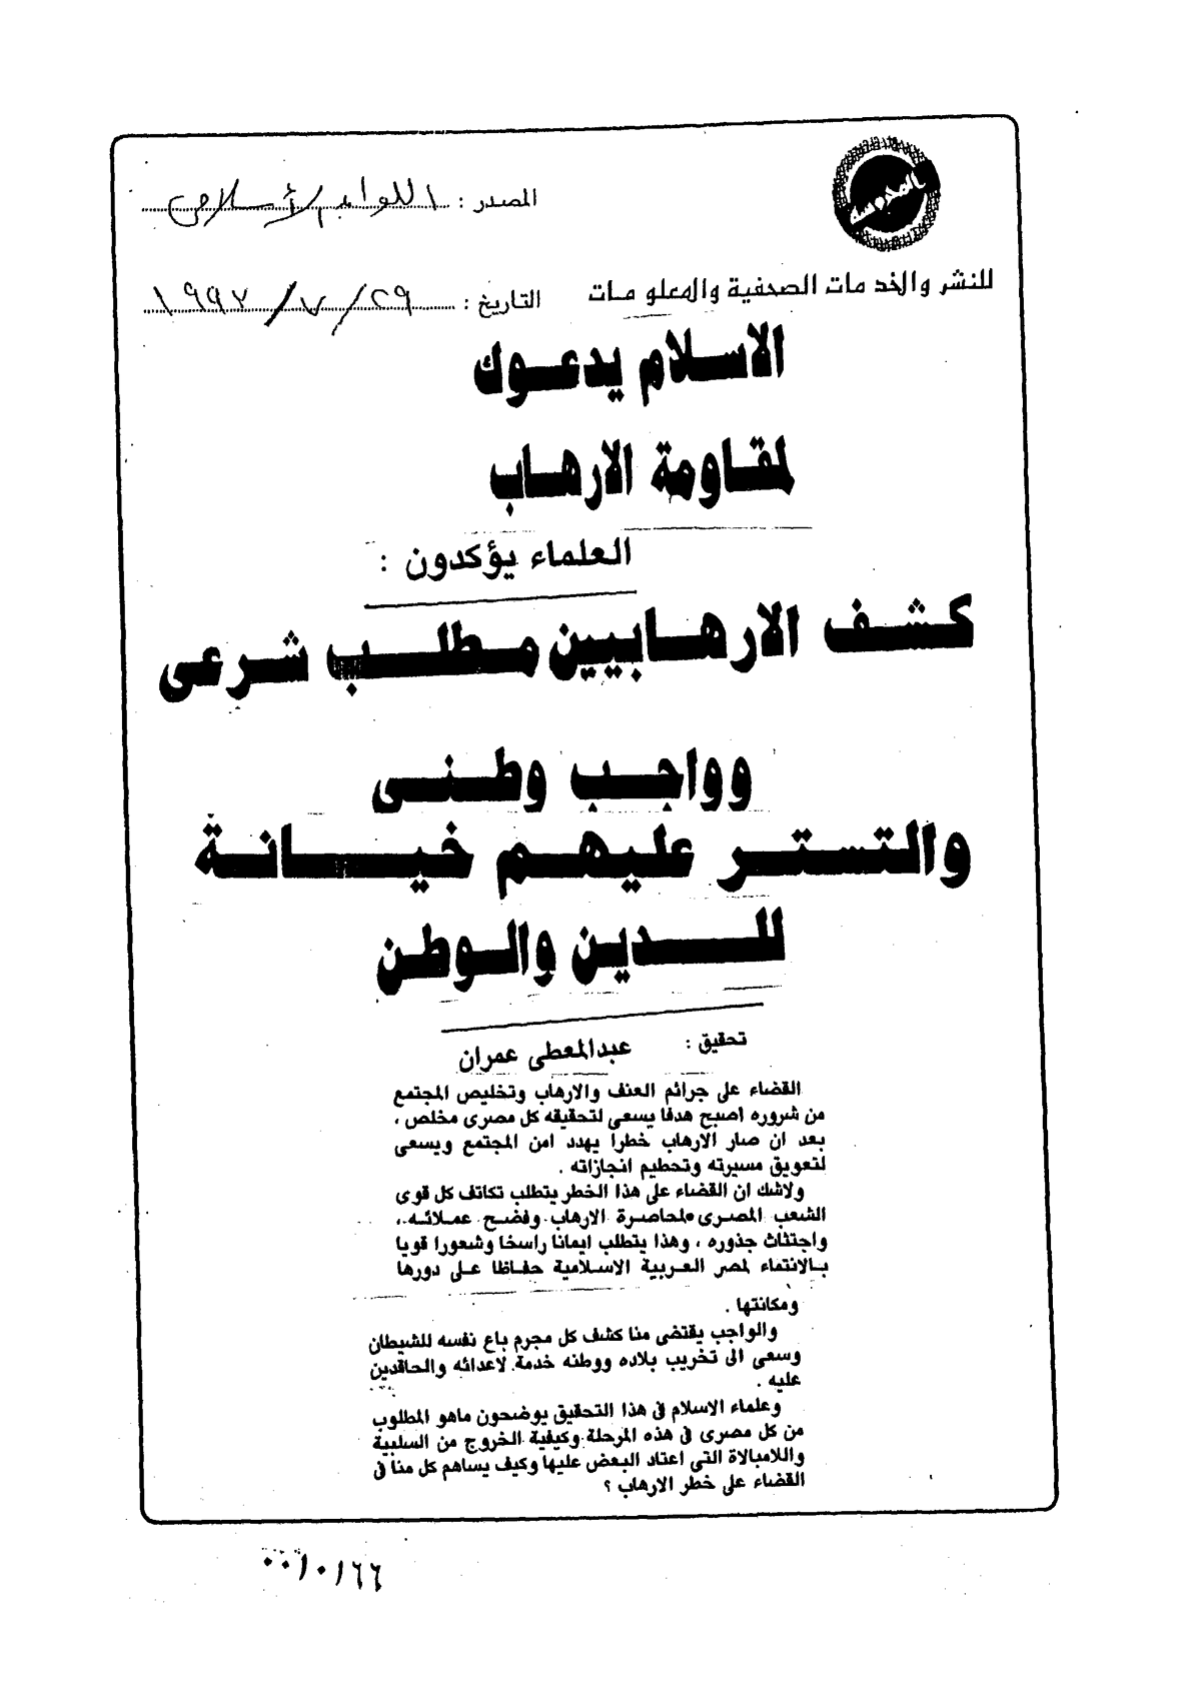 المحروسة
المصدر : اللواء الإسلامى
للنشر والخدمات الصحفية والمعلومات
التاريخ : ٢٩ / ٧ / ١٩٩٣
الاسلام يدعوك
لمقاومة الارهاب
العلماء يؤكدون :
كشف الارهابيين مطلب شرعى
وواجب وطنى
والتستر عليهم خيانة
للدين والوطن
تحقيق : عبدالمعطى عمران
القضاء على جرائم العنف والارهاب وتخليص المجتمع
من شروره اصبح هدفا يسعى لتحقيقه كل مصرى مخلص ،
بعد ان صار الارهاب خطرا يهدد امن المجتمع ويسعى
لتعويق مسيرته وتحطيم انجازاته .
ولاشك ان القضاء على هذا الخطر يتطلب تكاتف كل قوى
الشعب المصرى لمحاصرة الارهاب وفضح عملائه ،
واجتثاث جذوره ، وهذا يتطلب ايمانا راسخا وشعورا قويا
بالانتماء لمصر العربية الاسلامية حفاظا على دورها
ومكانتها .
والواجب يقتضى منا كشف كل مجرم باع نفسه للشيطان
وسعى الى تخريب بلاده ووطنه خدمة لاعدائه والحاقدين
عليه .
وعلماء الاسلام فى هذا التحقيق يوضحون ماهو المطلوب
من كل مصرى فى هذه المرحلة وكيفية الخروج من السلبية
واللامبالاة التى اعتاد البعض عليها وكيف يساهم كل منا فى
القضاء على خطر الارهاب ؟